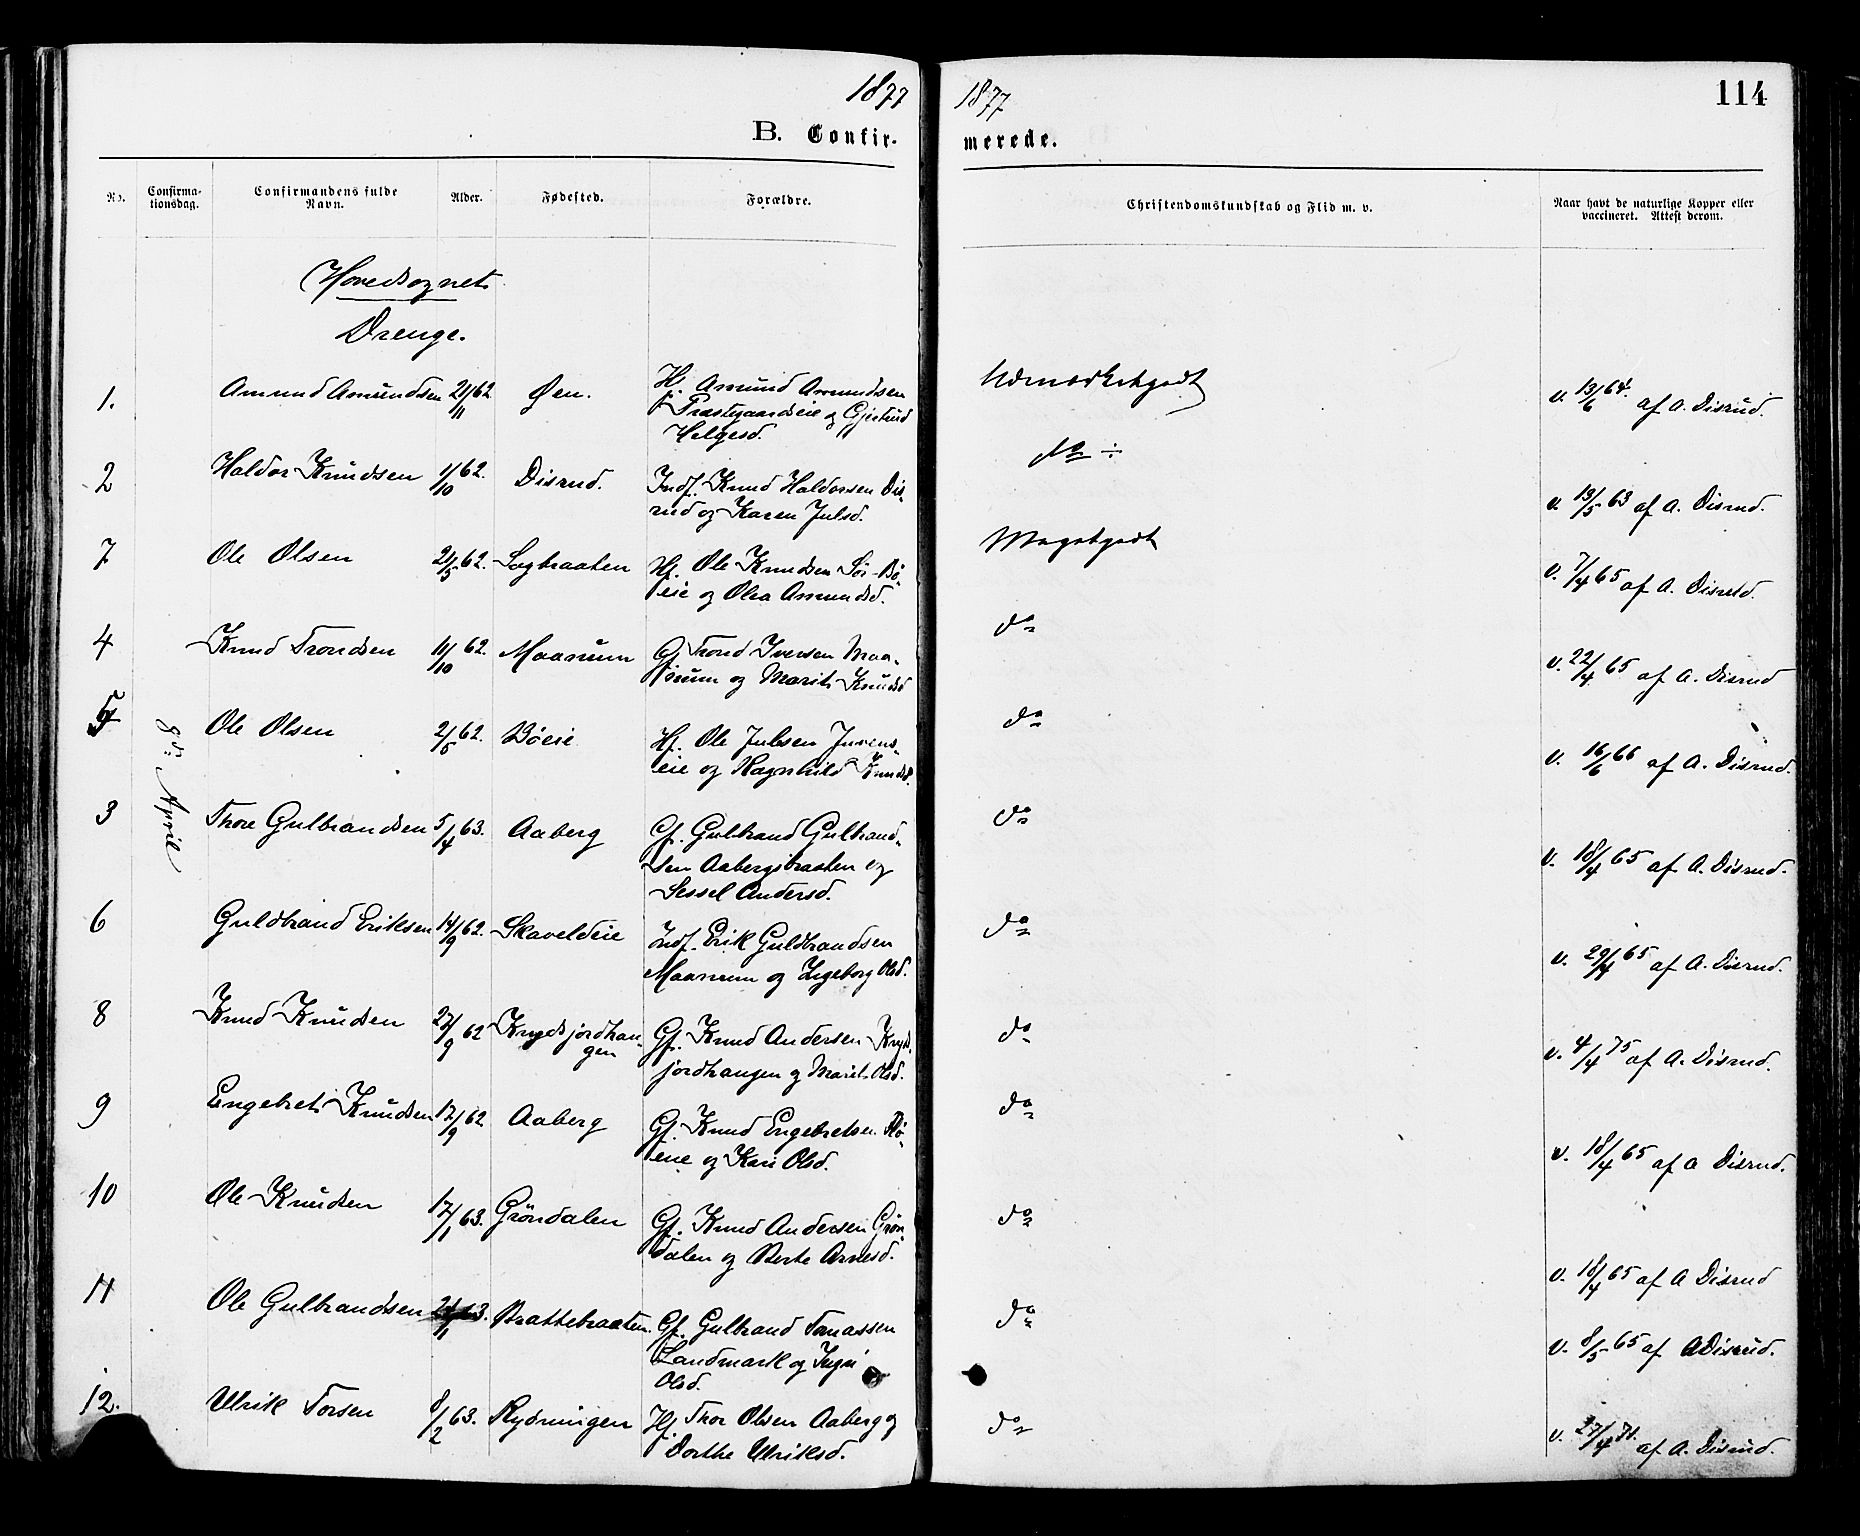 1877
B. Confir-
No.
Confirma-
tionsdag.
Confirmandens fulde
Navn.
Alder.
Fødested.
Forældre.
Hovedsognet.
Drenge.
8de April
1. Amund Amundsen 21/11 62 Øen. Hf. Amund Amundsen
Præstgaardseie og Gjertrud
Helgesd.
2 Haldor Knudsen 1/10 62. Disrud. Indf. Knud Haldorsen Dis-
rud og Karen Julsd.
7 Ole Olsen 21/5 62. Sagbraaten Hf. Ole Knudsen Sör-Bö-
eie og Olea Amundsd.
4 Knud Trondsen 11/10 62. Maanum Gf Trond Iversen Maa-
num og Marit Knudsd
5 Ole Olsen 2/5 62. Böeie Hf. Ole Julsen Juvens-
eie og Ragnhild Knudsd.
3 Thore Gulbrandsen 5/4 63. Aaberg Gf. Gulbrand Gulbrand-
sen Aabergsbraaten og
Sessel Andersd.
6 Guldbrand Eriksen 14/9 62. Skaveldeie Indf. Erik Guldbrandsen
Maanum og Ingeborg Olsd.
8 Knud Knudsen 27/9 62 Krydsjordhau-
gen Gf. Knud Andersen Kryds-
jordhaugen og Marit Olsd.
9 Engebret Knudsen 17/9 62 Aaberg Gf. Knud Engebretsen Rö-
eie og Kari Olsd.
10 Ole Knudsen 17/1 63. Gröndalen Gf. Knud Andersen Grön-
dalen og Berte Arnesd.
11 Ole Gulbrandsen 21/1 63. Brattebraaten. Gf. Gulbrand Tomassen
Landmark og Ingri
Olsd.
12. Ulrik Torsen 8/2 63. Rydningen Hf. Thor Olsen Aaberg og
Dorthe Ulriksd.
1877
114
merede.
Christendomskundskab og Flid m. v.
Naar havt de naturlige Kopper eller
vaccineret. Attest derom.
Udmærketgodt v. 13/6 64. af A. Disrud.
do ÷ v. 13/5 63 af A. Disrud.
Megetgodt v. 7/4 65 af A. Disrud.
do v. 22/4 65 af A. Disrud
do v. 16/6 66 af A. Disrud.
do v. 18/4 65 af A. Disrud.
do v. 29/4 65 af A. Disrud.
do v. 4/4 75 af A. Disrud.
do v. 18/4 65 af A Disrud.
do v. 18/4 65 af A Disrud
do v. 8/5 65 af A Disrud.
do v. 27/4 af A. Disrud.